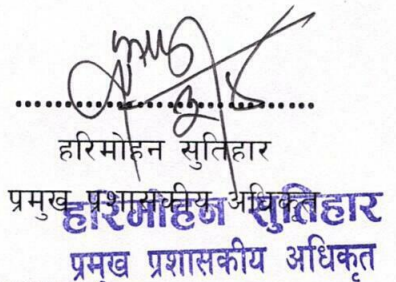 हरिमोहन सुतिहार
प्रमुख प्रशासकीय अधिकृत
हरिमोहन सुतिहार
प्रमुख प्रशासकीय अधिकृत